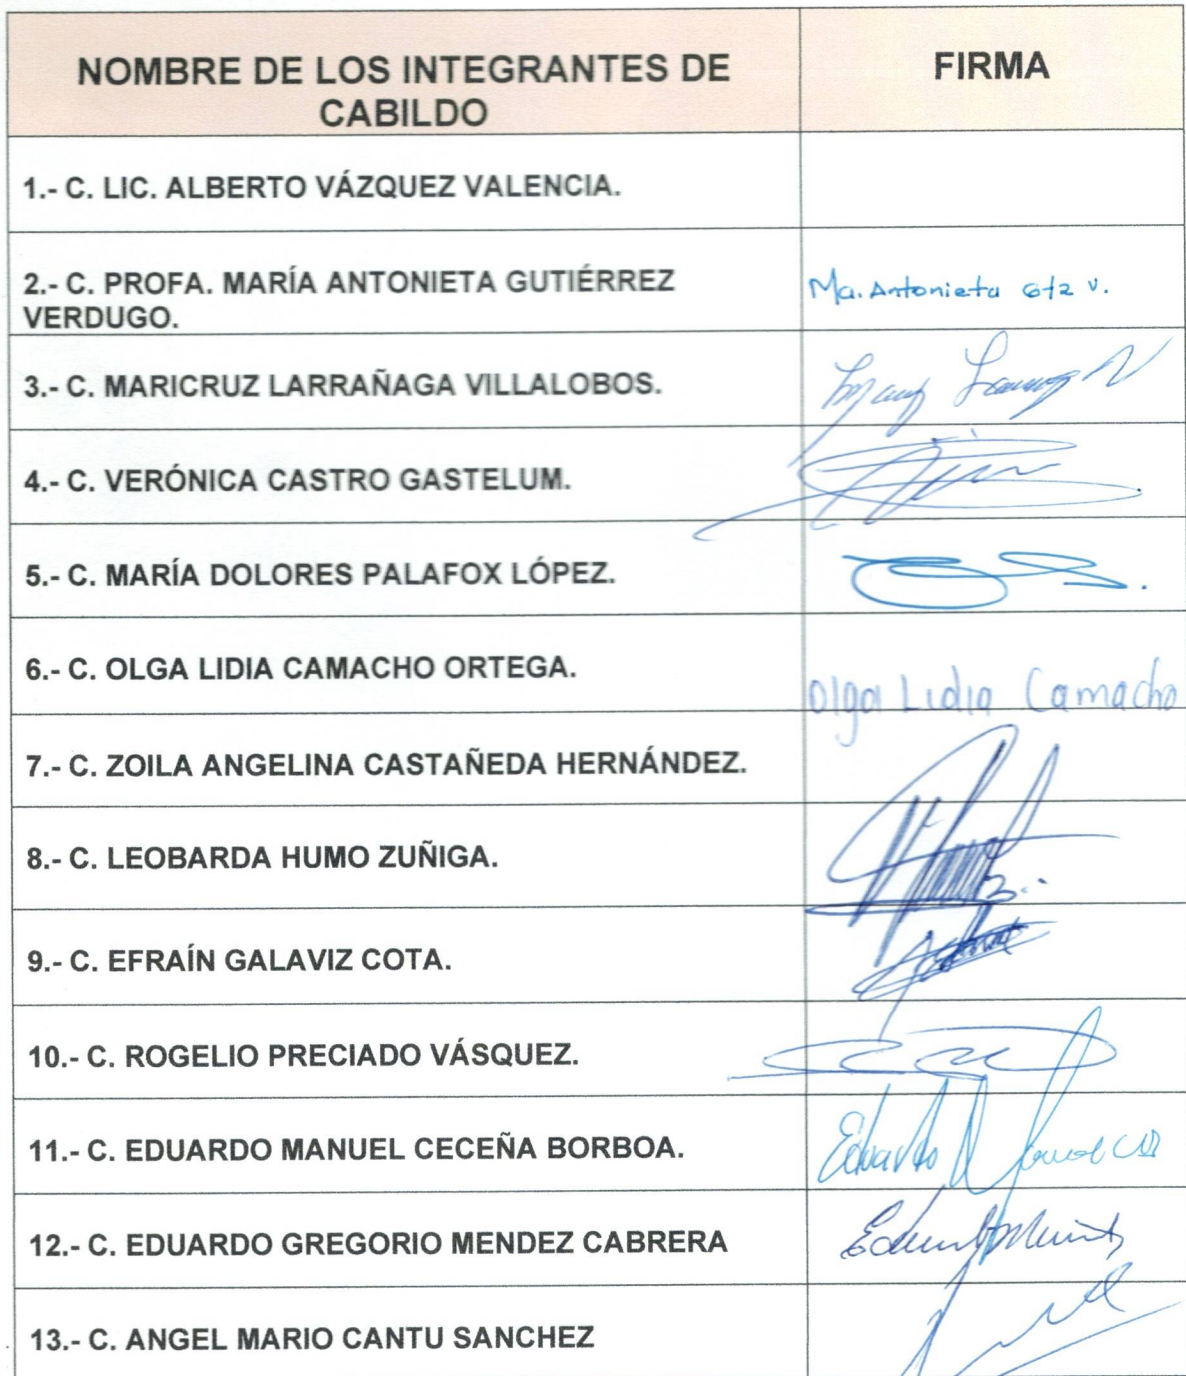 NOMBRE DE LOS INTEGRANTES DE
CABILDO
FIRMA
1.- C. LIC. ALBERTO VÁZQUEZ VALENCIA.
2.- C. PROFA. MARÍA ANTONIETA GUTIÉRREZ
VERDUGO.
Ma. Antonieta Gtz V.
3.- C. MARICRUZ LARRAÑAGA VILLALOBOS.
4.- C. VERÓNICA CASTRO GASTELUM.
5.- C. MARÍA DOLORES PALAFOX LÓPEZ.
6.- C. OLGA LIDIA CAMACHO ORTEGA.
Olga Lidia Camacho
7.- C. ZOILA ANGELINA CASTAÑEDA HERNÁNDEZ.
8.- C. LEOBARDA HUMO ZUÑIGA.
9.- C. EFRAÍN GALAVIZ COTA.
10.- C. ROGELIO PRECIADO VÁSQUEZ.
11.- C. EDUARDO MANUEL CECEÑA BORBOA.
Eduardo Manuel
12.- C. EDUARDO GREGORIO MENDEZ CABRERA
13.- C. ANGEL MARIO CANTU SANCHEZ